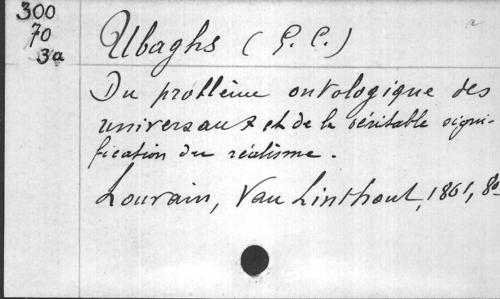 300
70
3a
Ubaghs (G. C.)
Du problème ontologique des
universaux et de la véritable signi-
fication du réalisme.
Louvain, Van Linthout, 1861, 8o